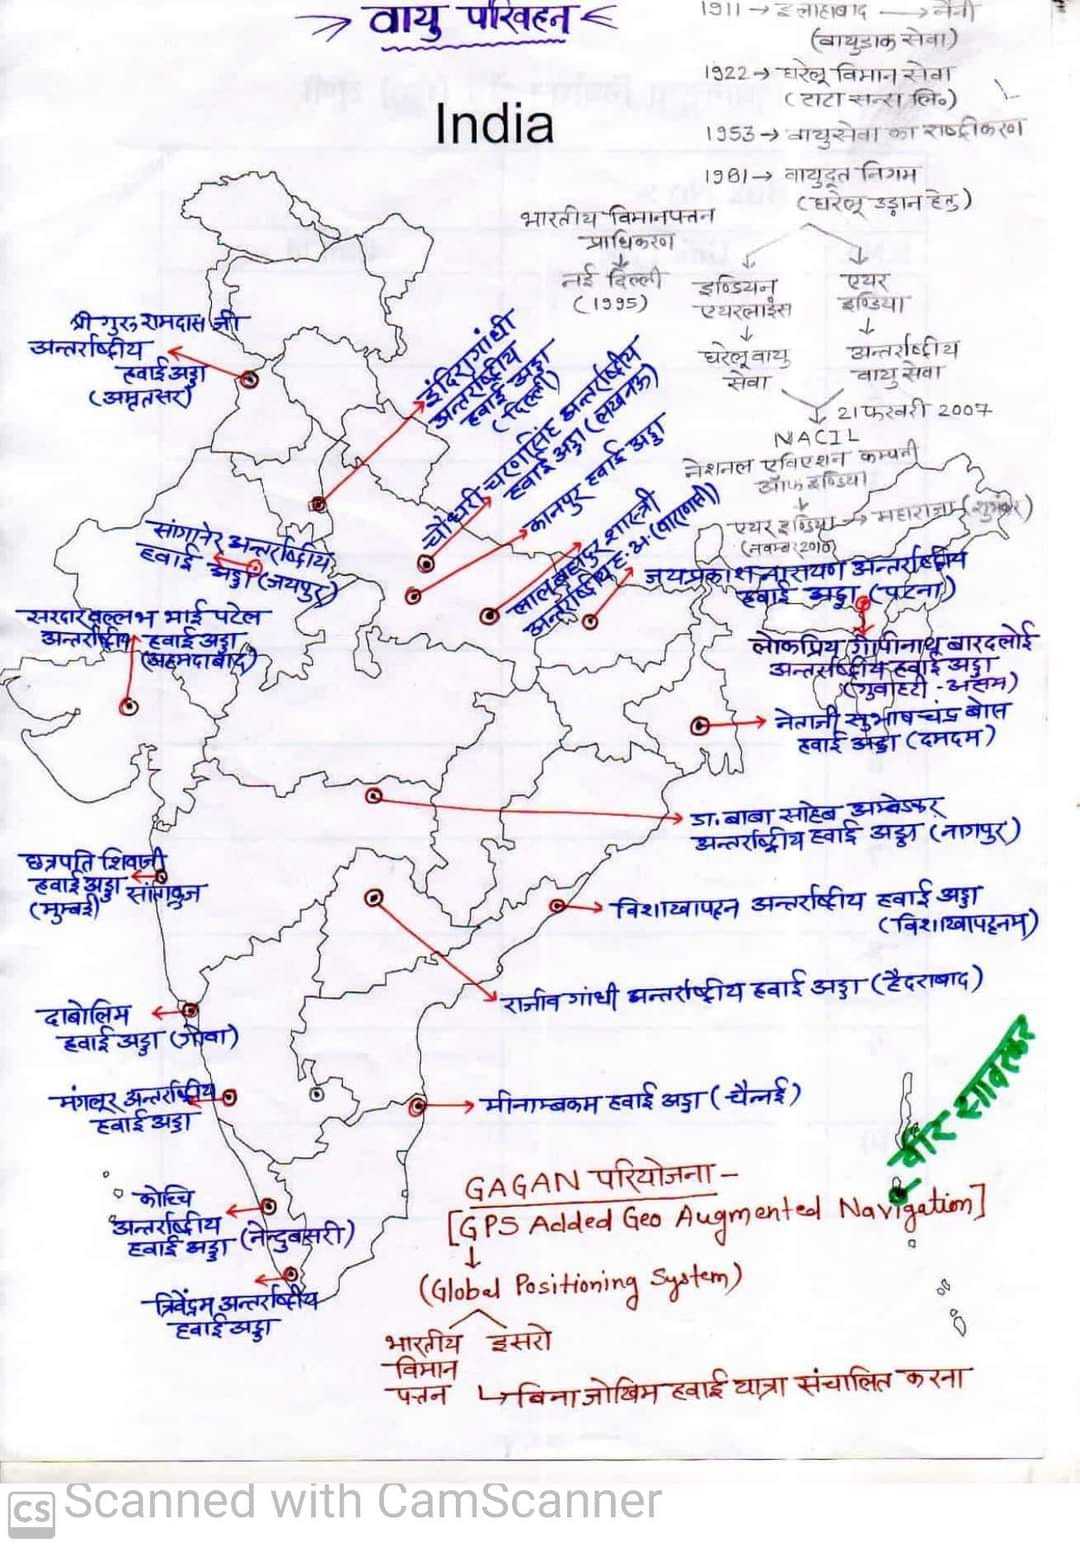 → वायु परिवहन ←
1911 → इलाहाबाद → नैनी
(वायुडाक सेवा)
1922 → घरेलू विमान सेवा
(टाटा सन्स लि०)
1953 → वायुसेवा का राष्ट्रीकरण
1981 → वायुदूत निगम
(घरेलू उड़ान हेतु)
India
भारतीय विमानपत्तन
प्राधिकरण
↓
नई दिल्ली
(1995)
इण्डियन
एयरलाइंस
↓
घरेलू वायु
सेवा
एयर
इण्डिया
↓
अन्तर्राष्ट्रीय
वायु सेवा
21 फरवरी 2007
NACIL
नेशनल एविएशन कम्पनी
ऑफ इण्डिया
↓
एयर इण्डिया → महाराजा (शुभंकर)
(नवम्बर 2010)
श्री गुरु रामदास जी
अन्तर्राष्ट्रीय
हवाई अड्डा
(अमृतसर)
इंदिरा गांधी
अन्तर्राष्ट्रीय
हवाई अड्डा
(दिल्ली)
चौधरी चरणसिंह अन्तर्राष्ट्रीय
हवाई अड्डा (लखनऊ)
कानपुर हवाई अड्डा
लाल बहादुर शास्त्री
अन्तर्राष्ट्रीय ह. अ. (वाराणसी)
सांगानेर अन्तर्राष्ट्रीय
हवाई अड्डा (जयपुर)
जयप्रकाश नारायण अन्तर्राष्ट्रीय
हवाई अड्डा (पटना)
सरदार वल्लभ भाई पटेल
अन्तर्राष्ट्रीय हवाई अड्डा
(अहमदाबाद)
लोकप्रिय गोपीनाथ बारदलोई
अन्तर्राष्ट्रीय हवाई अड्डा
(गुवाहटी - असम)
नेताजी सुभाष चंद्र बोस
हवाई अड्डा (दमदम)
डा. बाबा साहेब अम्बेडकर
अन्तर्राष्ट्रीय हवाई अड्डा (नागपुर)
छत्रपति शिवाजी
हवाई अड्डा सांताक्रुज
(मुम्बई)
विशाखापट्टन अन्तर्राष्ट्रीय हवाई अड्डा
(विशाखापट्टनम)
राजीव गांधी अन्तर्राष्ट्रीय हवाई अड्डा (हैदराबाद)
दाबोलिम
हवाई अड्डा (गोवा)
मंगलूर अन्तर्राष्ट्रीय
हवाई अड्डा
मीनाम्बकम हवाई अड्डा (चैन्नई)
वीर सावरकर
कोच्चि
अन्तर्राष्ट्रीय
हवाई अड्डा (नेन्दुबासरी)
त्रिवेंद्रम अन्तर्राष्ट्रीय
हवाई अड्डा
GAGAN परियोजना -
[GPS Added Geo Augmented Navigation]
↓
(Global Positioning System)
भारतीय
विमान
पत्तन
इसरो
↳ बिना जोखिम हवाई यात्रा संचालित करना
CS Scanned with CamScanner